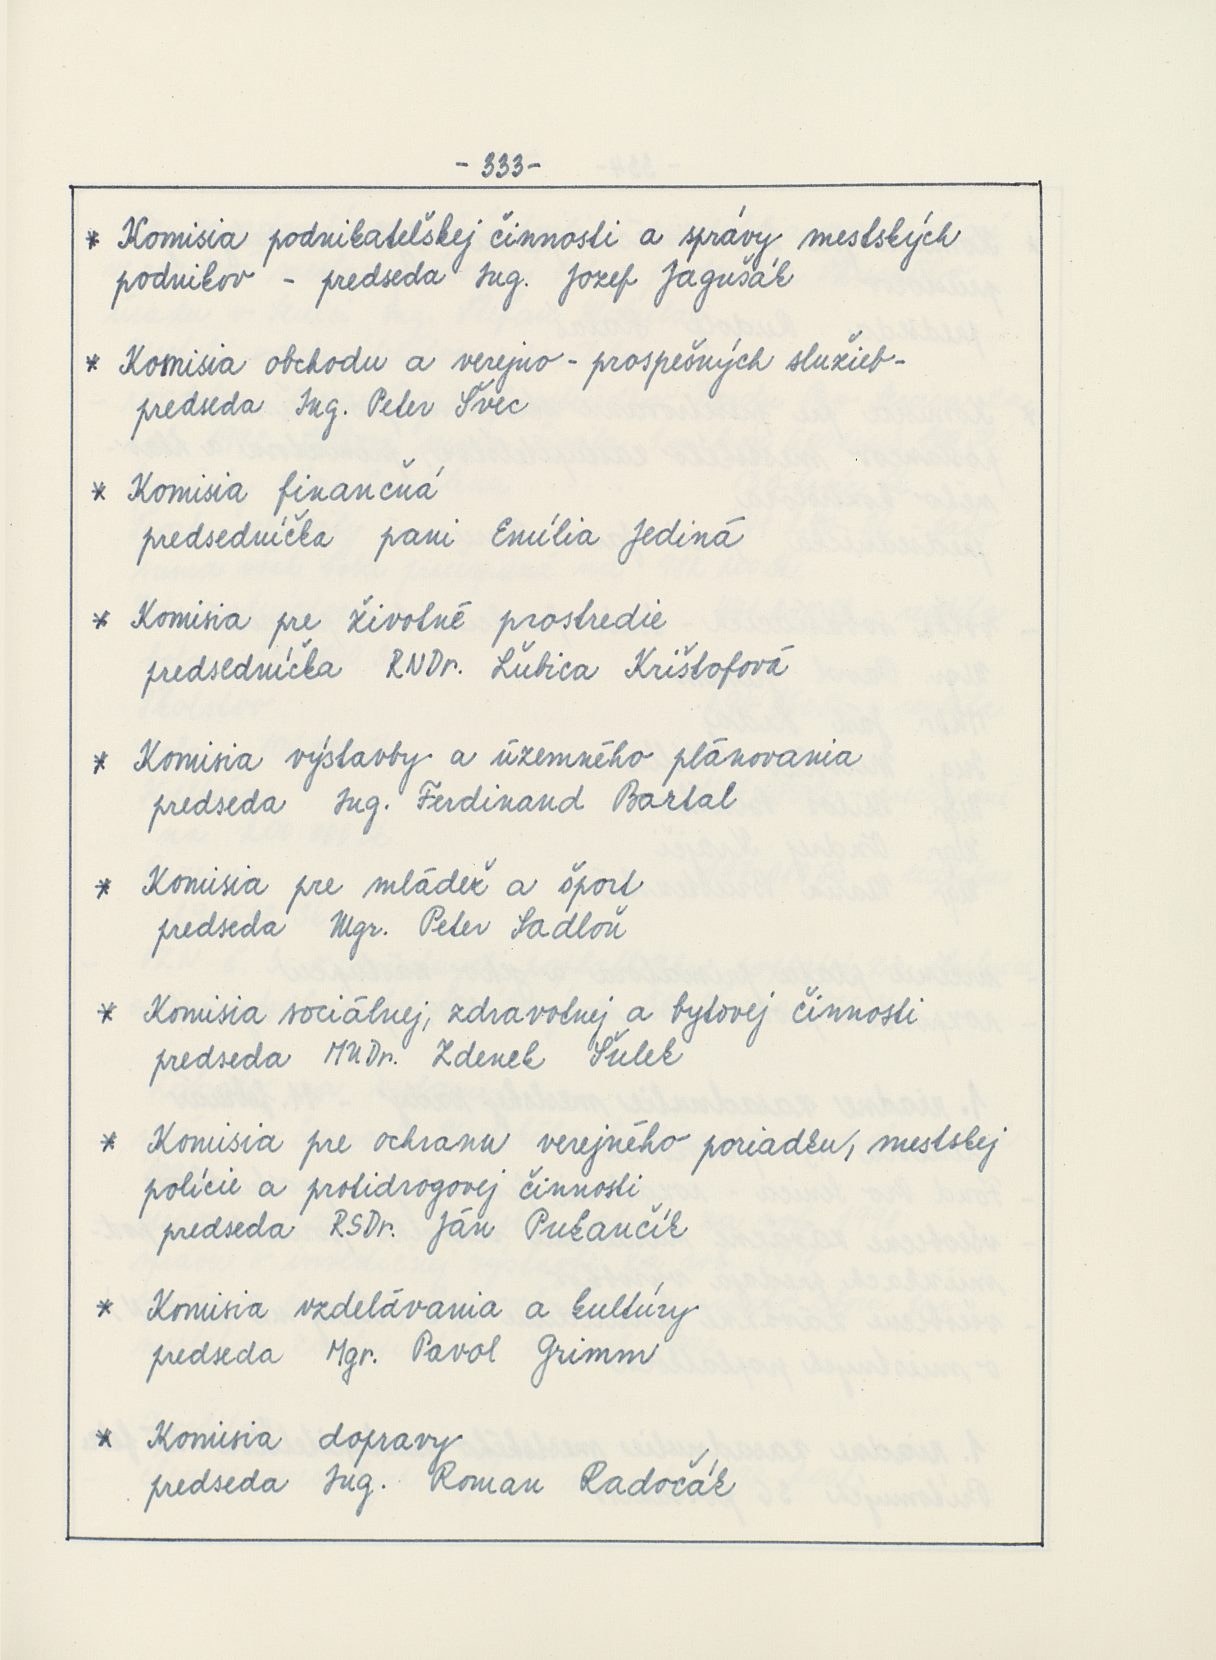 - 333 -
* Komisia podnikateľskej činnosti a správy mestských
podnikov - predseda Ing. Jozef Jagušák
* Komisia obchodu a verejno - prospešných služieb -
predseda Ing. Peter Švec
* Komisia finančná
predsedníčka pani Emília Jediná
* Komisia pre životné prostredie
predsedníčka RNDr. Ľubica Krištofová
* Komisia výstavby a územného plánovania
predseda Ing. Ferdinand Bartal
* Komisia pre mládež a šport
predseda Mgr. Peter Sadloň
* Komisia sociálnej, zdravotnej a bytovej činnosti
predseda MUDr. Zdenek Šulek
* Komisia pre ochranu verejného poriadku, mestskej
polície a protidrogovej činnosti
predseda RSDr. Ján Pukančík
* Komisia vzdelávania a kultúry
predseda Mgr. Pavol Grimm
* Komisia dopravy
predseda Ing. Roman Radočák